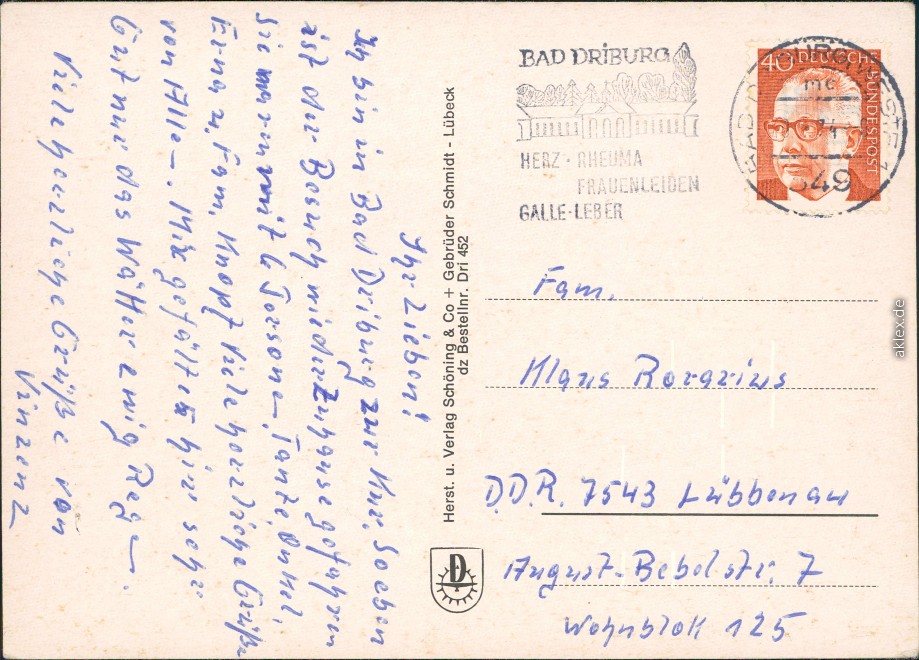 Ihr Lieben!
Ich bin in Bad Driburg zur Kur. Soeben
ist der Besuch wieder Zuhause gefahren
Sie waren mit 6 Person—, Tante, Onkel,
Erna u. Fam. Knopf viele herzliche Grüße
von Alle—. Mir gefällt es hier sehr
Gut nur das Wetter ewig Reg—.
Viele herzliche Grüße von
Vinzenz
Herst. u. Verlag Schöning & Co + Gebrüder Schmidt - Lübeck
dz Bestellnr. Dri 452
BAD DRIBURG
HERZ · RHEUMA
FRAUENLEIDEN
GALLE · LEBER
40 DEUTSCHE
BUNDESPOST
349
Fam.
Klaus Rovarius
D.D.R. 7543 Lübbenau
August-Bebelstr. 7
Wohnblok 125
aklex.de